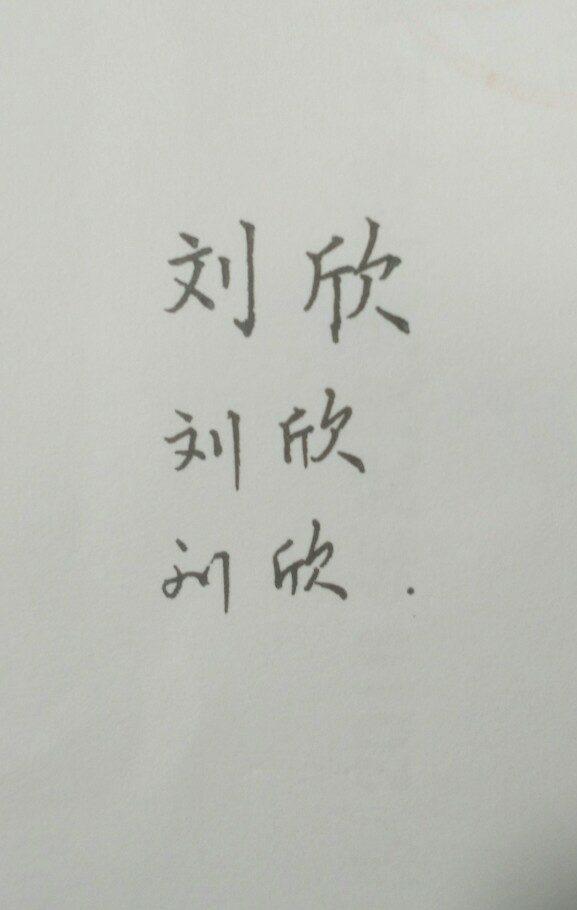 刘欣
刘欣
刘欣.